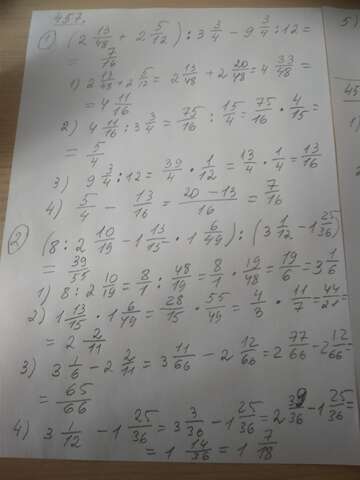 457.
1) (2 13/48 + 2 5/12) : 3 3/4 - 9 3/4 : 12 =
= 7/16
1) 2 13/48 + 2 5/12 = 2 13/48 + 2 20/48 = 4 33/48 =
= 4 11/16
2) 4 11/16 : 3 3/4 = 75/16 : 15/4 = 75/16 · 4/15 =
= 5/4
3) 9 3/4 : 12 = 39/4 · 1/12 = 13/4 · 1/4 = 13/16
4) 5/4 - 13/16 = 20-13/16 = 7/16
2) (8 : 2 10/19 - 1 13/15 · 1 6/49) : (3 1/12 - 1 25/36)
= 39/55
1) 8 : 2 10/19 = 8/1 : 48/19 = 8/1 · 19/48 = 19/6 = 3 1/6
2) 1 13/15 · 1 6/49 = 28/15 · 55/49 = 4/3 · 11/7 = 44/21 =
= 2 2/11
3) 3 1/6 - 2 2/11 = 3 11/66 - 2 12/66 = 2 77/66 - 2 12/66 =
= 65/66
4) 3 1/12 - 1 25/36 = 3 3/36 - 1 25/36 = 2 39/36 - 1 25/36 =
= 1 14/36 = 1 7/18
5)
45
1)